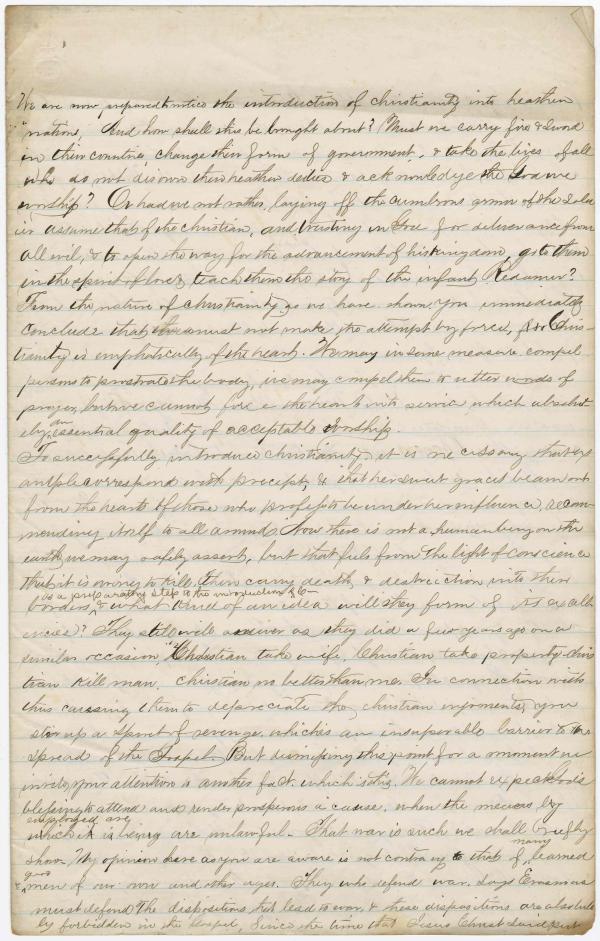 We are now prepared to notice the introduction of christianity into heathen
nations, And how shall this be brought about? Must we carry fire & sword
in their countrie, change their form of government, & take the lives of all
who do not disown their heathen deities & acknowledge the God we
worship? Or had we not rather, laying off the cumbrous armor of the
assume that of the christian, and trusting in God for deliverance from
all evil, & to open the way for the advancement of his kingdom, go to them
in the spirit of love & teach them the story of the infant Redeemer?
From the nature of christianity as we have shown you immediately
conclude that we must not make the attempt by force, for Chris-
tianity is emphatically of the heart. We may in some measure compel
persons to prostrate the body, we may compel them to utter words of
prayer, but we cannot force the heart into service which absolut-
ely an essential quality of acceptable worship.
To successfully introduce christianity it is necessary that ex
ample correspond with precept, & that her sweet graces beam out
from the hearts of those who profess to be under her influence, recom-
mending itself to all around. Now there is not a human being on the
earth, we may safely assert, but that feels from the light of conscience
that it is wrong to kill, then carry death & destruction into their
as a preparatory step to the introduction of C-
borders & what kind of an idea will they form of its excell
encies? They still will answer as they did a few years ago on a
similar occasion "Christian take wife, Christian take property, Chris
tian kill man. Christian no better than me. In connection with
this causing them to depreciate the christian you
stir up a spirit of revenge, which is an insuperable barrier to the
spread of the Gospel. But dismissing this point for a moment we
invite your attention to another fact which is this, We cannot expect God's
blessing to attend and render prosperous a cause, when the means by
employed are
which it is being are unlawful. That war is such we shall briefly
show. My opinion here as you are aware is not contrary to that of many learned
& good men of our own and other ages. They who defend war, says Erasmus
must defend the dispositions that lead to war, & these dispositions are absolute
ly forbidden in the Gospel, Since the time that Jesus Christ said put